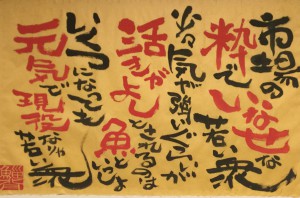 市場の
粋でいなせな
若い衆
気が強いぐらいが
活きがよし
とされるのは
魚といっしょ
いくつになっても
元気で現役
なりゃ若い衆